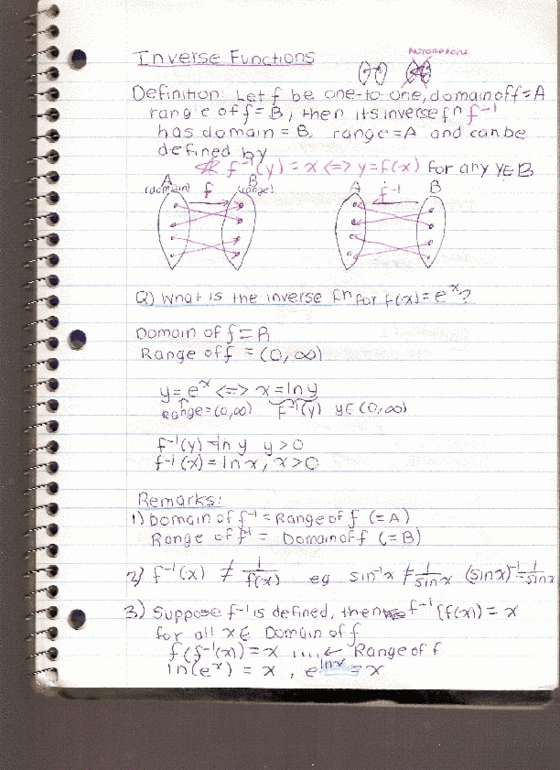 Inverse Functions
Not one to one
Definition: Let f be one-to-one, domain of f = A
range of f = B, then its inverse fn f⁻¹
has domain = B, range = A and can be
defined by
f⁻¹(y) = x <=> y = f(x) for any y ∈ B
A (domain) f B (range) A f⁻¹ B
Q) What is the inverse fn for f(x) = eˣ?
Domain of f = R
Range of f = (0, ∞)
y = eˣ <=> x = ln y
Range = (0, ∞) f⁻¹(y) y ∈ (0, ∞)
f⁻¹(y) = ln y y > 0
f⁻¹(x) = ln x, x > 0
Remarks:
1) Domain of f⁻¹ = Range of f (= A)
Range of f⁻¹ = Domain of f (= B)
2) f⁻¹(x) ≠ 1/f(x) eg sin⁻¹x ≠ 1/sinx (sinx)⁻¹ = 1/sinx
3) Suppose f⁻¹ is defined, then f⁻¹(f(x)) = x
for all x ∈ Domain of f
f(f⁻¹(x)) = x .... ← Range of f
ln(eˣ) = x , e^lnx = x